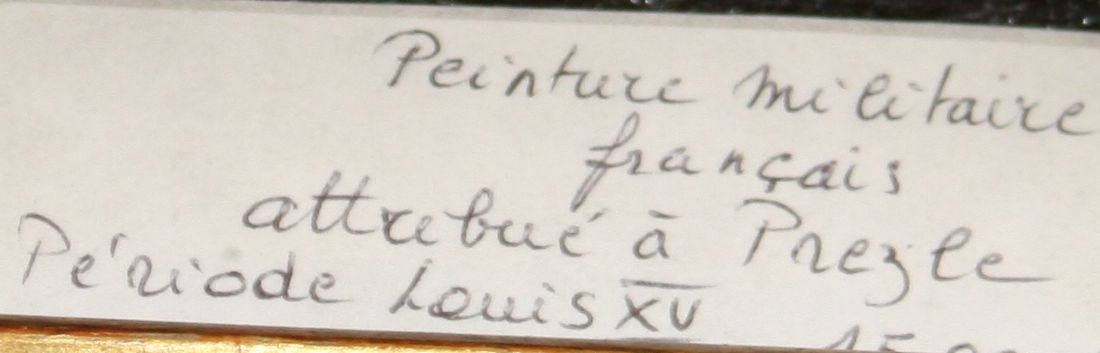 Peinture militaire
français
attribué à Prezle
Période Louis XV